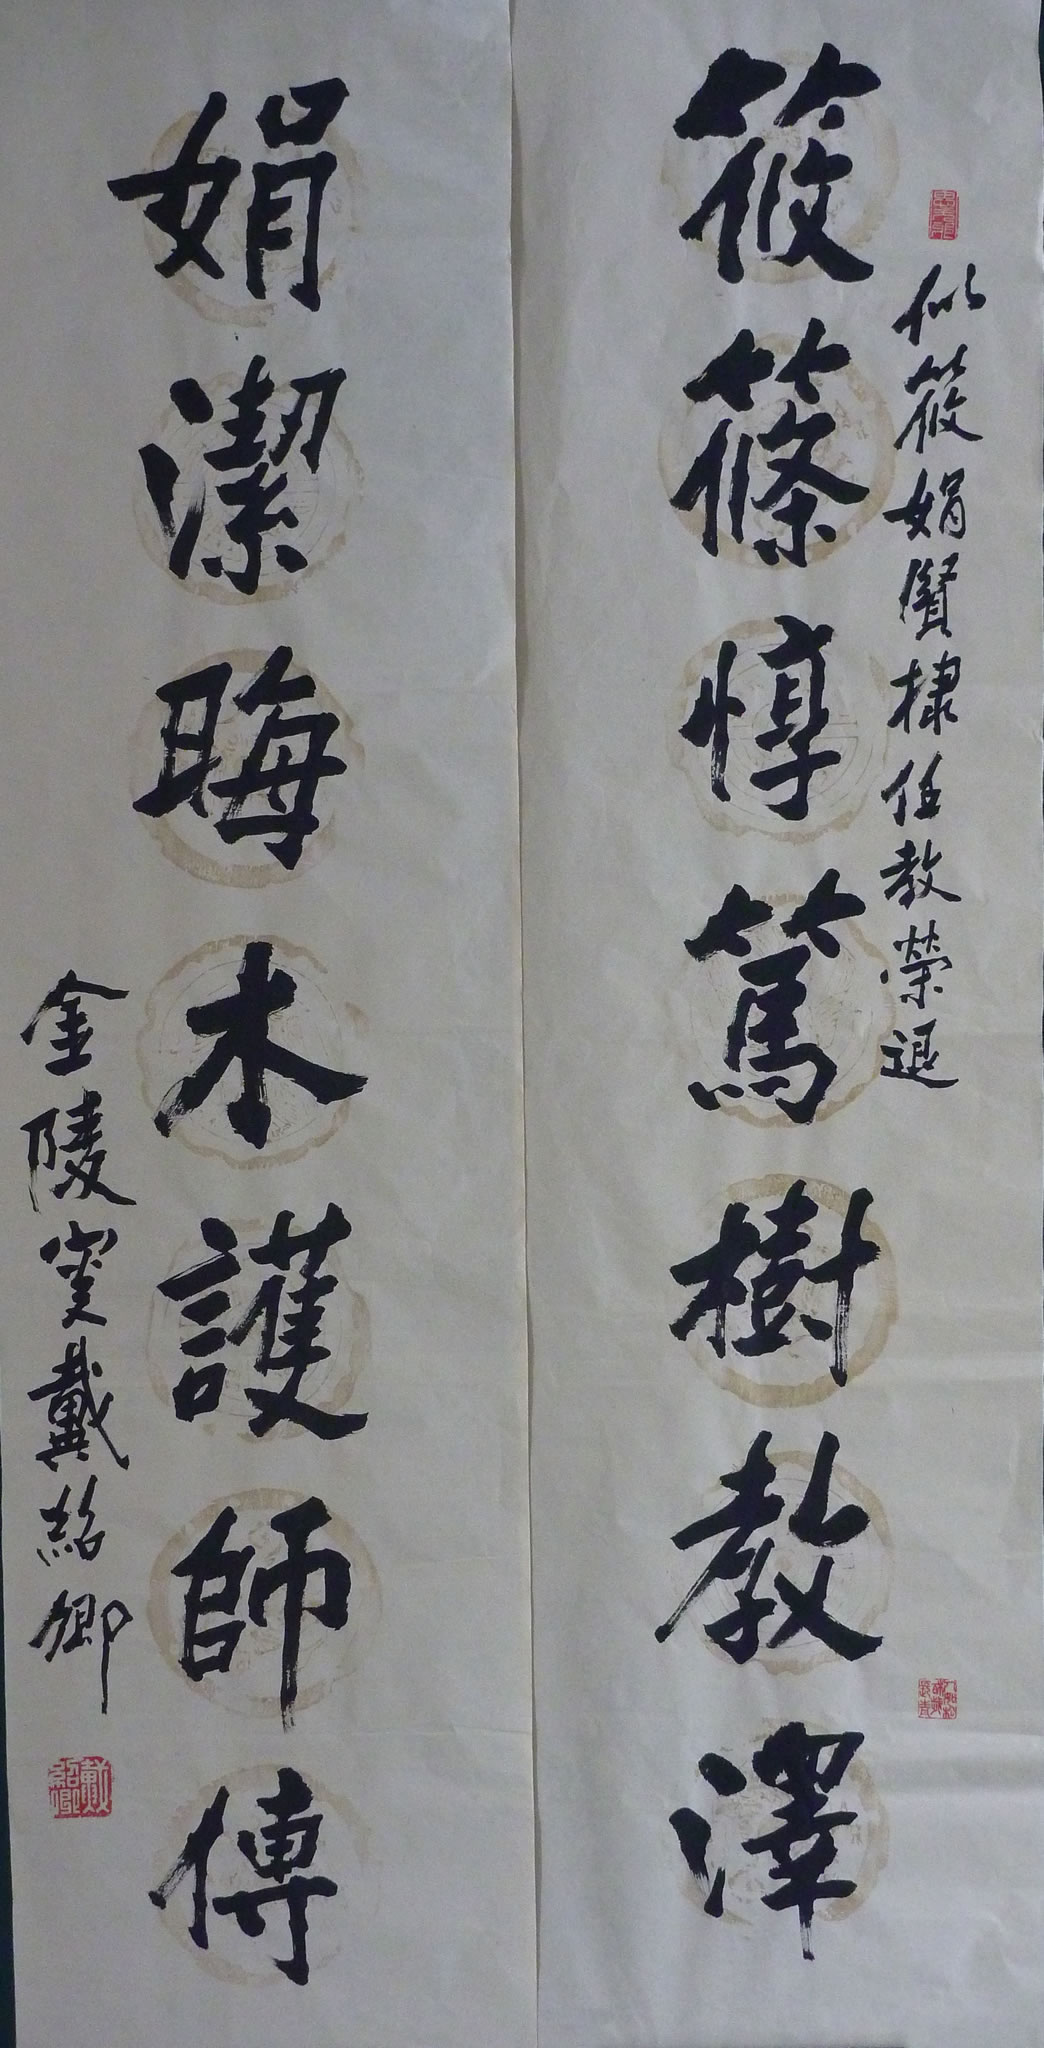 似筱娟賢棣任教榮退
筱篠惇篤樹教澤
娟潔晦木護師傅
金陵叟戴紹卿
戴紹卿